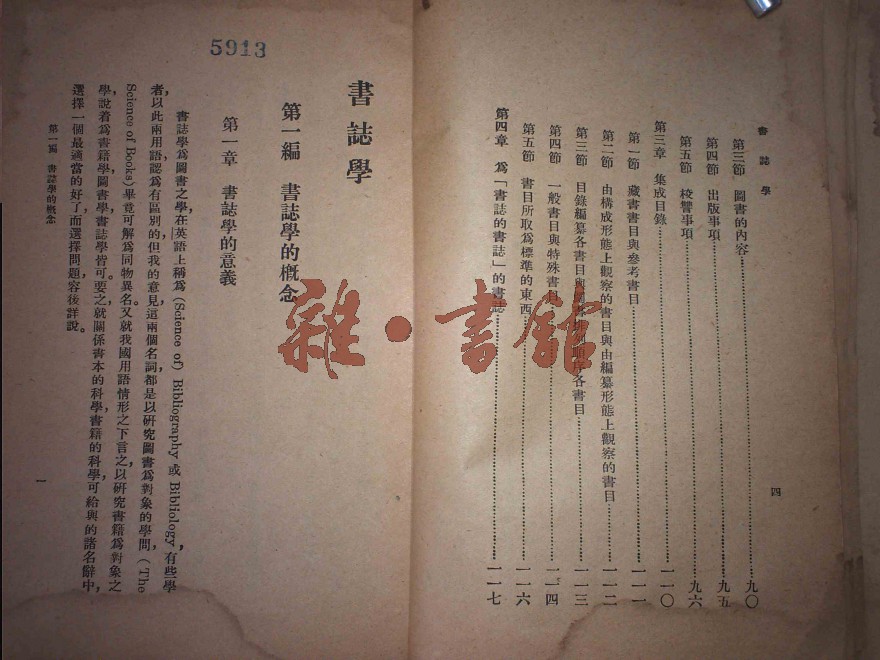 書誌學
四
第三節 圖書的內容……九〇
第四節 出版事項……九五
第五節 校讐事項……九六
第三章 集成目錄……一一〇
第一節 藏書書目與參考書目……一一一
第二節 由構成形態上觀察的書目與由編纂形態上觀察的書目……一一二
第三節 目錄編纂各書目與圖書排列順序各書目……一一三
第四節 一般書目與特殊書目……一一四
第五節 書目所取爲標準的東西……一一六
第四章 爲「書誌的書誌」的書誌……一一七
5913
書誌學
第一編 書誌學的概念
第一章 書誌學的意義
書誌學爲圖書之學,在英語上稱爲(Science of) Bibliography 或 Bibliology,有些學
者,以此兩用語,認爲有區別的,但我的意見,這兩個名詞,都是以研究圖書爲對象的學問(The
Science of Books)畢竟可解爲同物異名。又就我國用語情形之下言之,以研究書籍爲對象之
學,說着爲書籍學圖書學書誌學皆可。要之,就關係書本的科學,書籍的科學,可給與的諸名辭中,
選擇一個最適當的好了,而選擇問題,容後詳說。
第一編 書誌學的概念
一
雜·書館